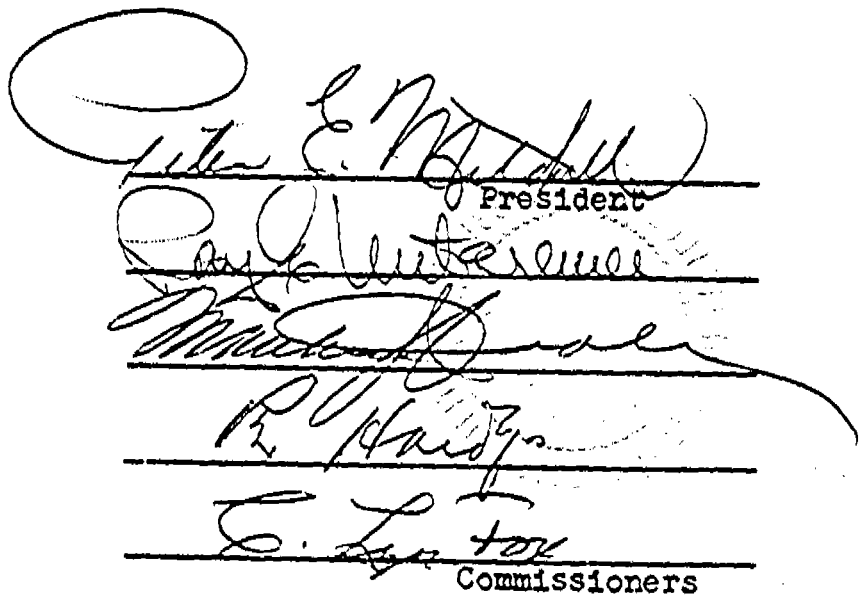 Peter E. Mitchell
President
Ray E. Untereiner
R. Hardy
C. Lyn Fox
Commissioners